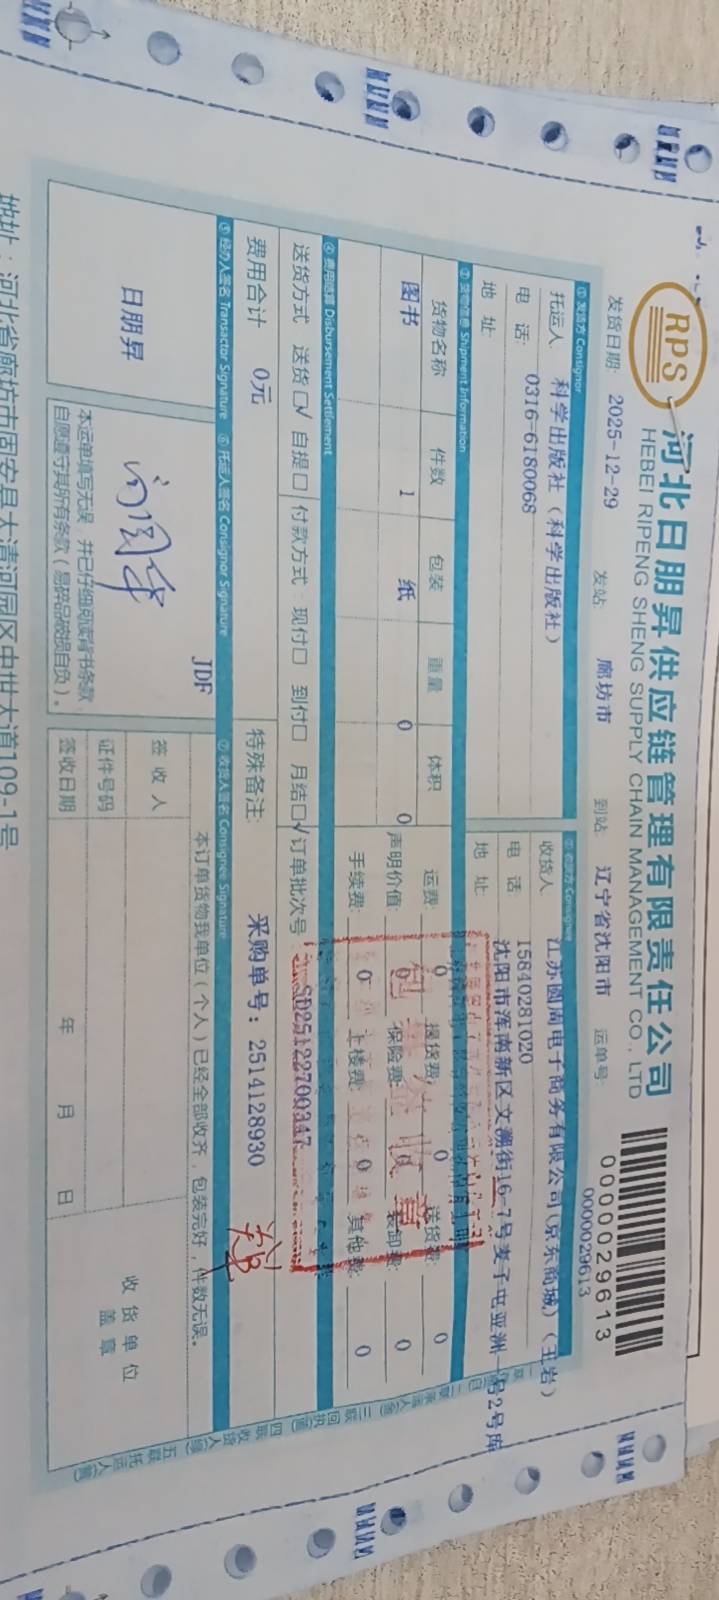 RPS
河北日朋昇供应链管理有限责任公司
HEBEI RIPENG SHENG SUPPLY CHAIN MANAGEMENT CO., LTD
0000029613
发货日期: 2025-12-29 发站: 廊坊市 到站: 辽宁省沈阳市 运单号: 0000029613
① 发货方 Consignor
托运人: 科学出版社（科学出版社）
电 话: 0316-6180068
地 址:
② 收货方 Consignee
收货人: 江苏圆周电子商务有限公司(京东商城)（王岩）
电 话: 15840281020
地 址: 沈阳市浑南新区文溯街16-7号麦子屯亚洲一号2号库
③ 货物信息 Shipment Information
货物名称 件数 包装 重量 体积
图书 1 纸 0 0
运费: 0 提货费: 0 送货费: 0
声明价值: 0 保险费: 0 装卸费: 0
手续费: 0 上楼费: 0 其他费: 0
④ 费用结算 Disbursement Settlement
送货方式 送货□√ 自提□ 付款方式: 现付□ 到付□ 月结□√ 订单批次号 SD25122700347
费用合计 0元
特殊备注: 采购单号: 2514128930
⑤ 经办人签名 Transactor Signature ⑥ 托运人签名 Consignor Signature ⑦ 收货人签名 Consignee Signature
日朋昇
JDF
本运单填写无误，并已仔细阅读背书条款，
自愿遵守其所有条款（易碎品破损自负）。
本订单货物我单位（个人）已经全部收齐，包装完好，件数无误。
签 收 人
证件号码
签收日期 年 月 日
收 货 单 位
盖 章
地址：河北省廊坊市固安县大清河园区中世大道109-1号